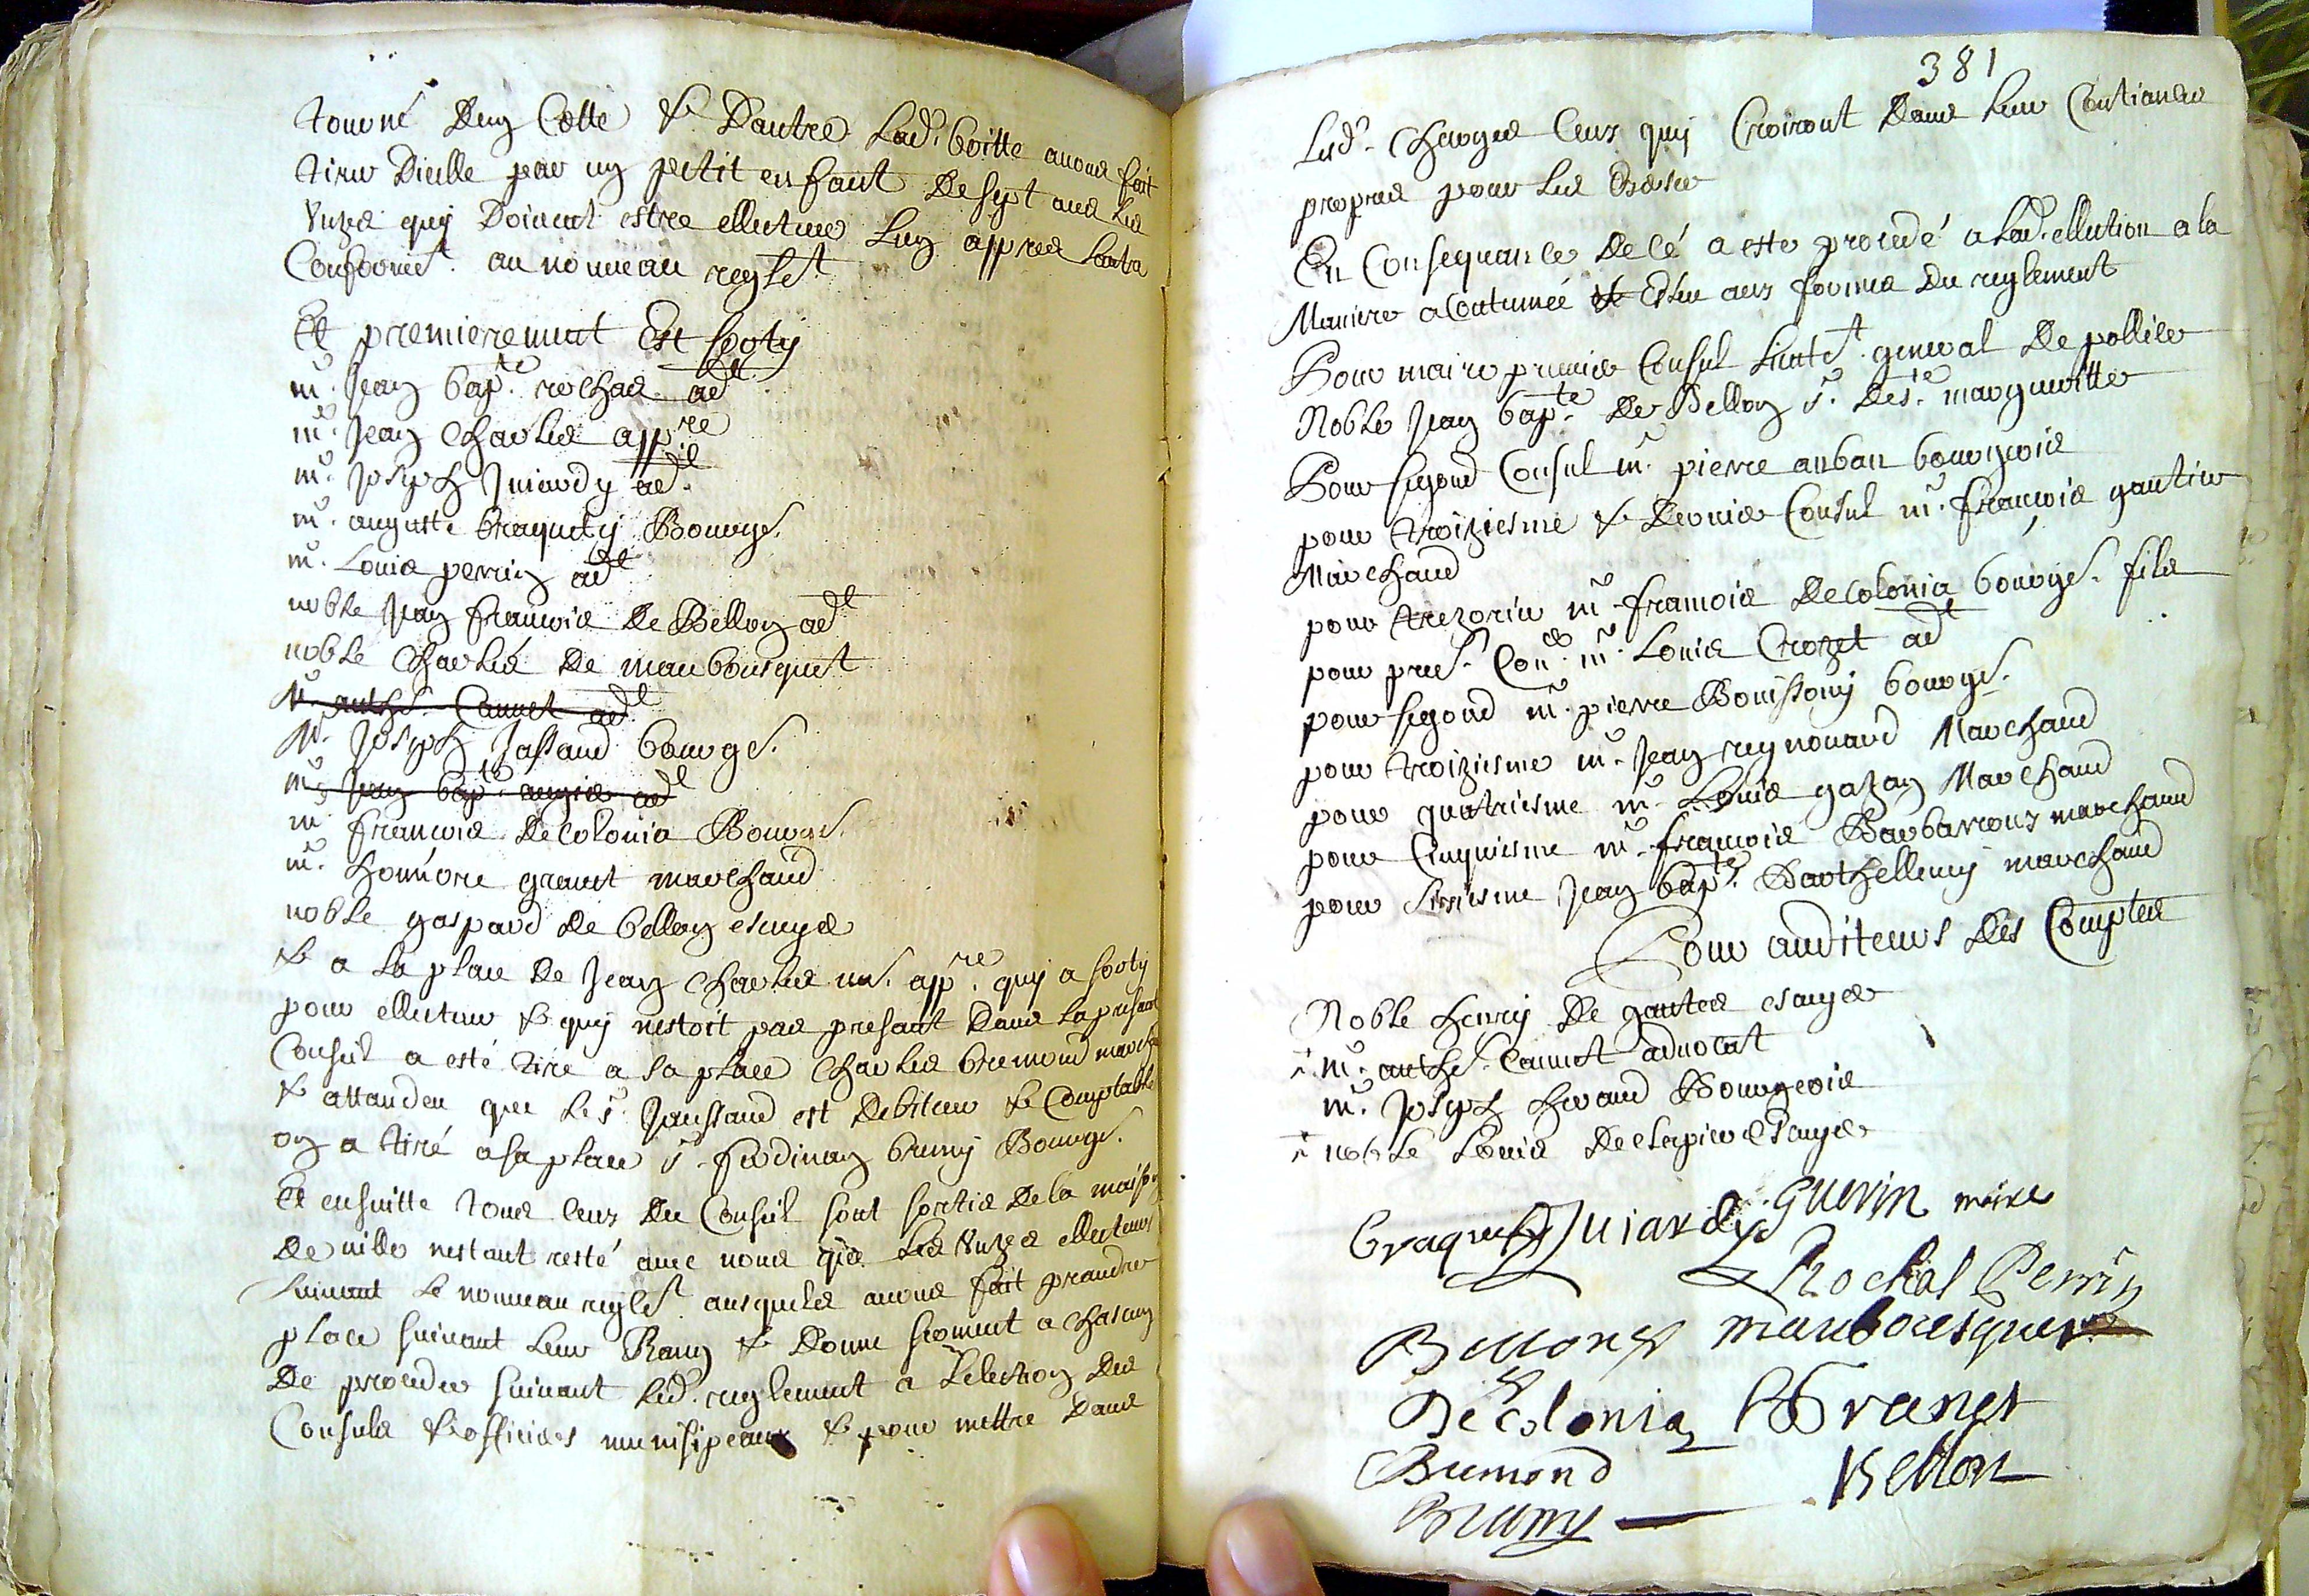 tourné d'un Cotte & Dautre lad.e boitte avons fait
tirer Dicelle par un petit enfant de sept ans les
unze quy doivent estre ellecteurs lun appres lautre
Conformet. au nouveau reglet.
Et premierement Est sorty
mr. Jean bapte. rochas adt
mr. Jean Charles appre
mr. Joseph Juiardy adt.
mr. auguste braquety Bourgs.
mr. Louis perrin adt
noble Jean francois De Bellon adt
noble Charles De maubousquet
Mr. anthe. Cannet adt.
Mr. Joseph Jassaud bourgs.
mr. Jean bapte. augier adt
mr. francois Decolonia Bourgs.
mr. honnore granet marchand
noble gaspard de bellon escuyer
& a la place de Jean Charles mr. appre. quy a sorty
pour ellecteur & quy nestoit pas presant dans la presant
Conseil a esté tiré a sa place Charles bremond march
& attandeu que le sr. Jaussaud est debiteur & Comptable
on a tiré a sa place sr. ferdinan bruny Bourgs.
Et ensuitte tous ceux du Conseil sont sortis de la maison
De ville nestant resté avec nous que les unze ellecteurs
suivant le nouveau reglet. ausquels avons fait prandre
place suivant leur Rang & donne serment a chascun
De proceder suivant led. reglement a lelection des
Consuls & officiers municipeaux & pour mettre dans
381
Lesd. charges ceux quy Croiront dans leur Contiance
propres pour les Exercer
En Consequance de cé a este procedé a lad. ellection a la
Maniere acoutumée et Esleu aux formes du reglement
Pour maire premier Consul lieutet. general de pollice
Noble Jean bapte. De Bellon sr. de ste. margueritte
Pour segond Consul mr. pierre auban bourgeois
pour troiziesme & dernier Consul mr. françois gautier
Marchand
pour trezorier mr. francois Decolonia bourgs. fils
pour premr. Coner. mr. Louis Crozet adt
pour segond mr. pierre Bouissony bourgs.
pour troiziesme mr. Jean reynouard Marchand
pour quatriesme mr. Louis gazan Marchand
pour Cinquiesme mr. francois Barbarroux marchand
pour sixiesme Jean bapte. Barthellemy marchand
Pour auditeurs des Comptes
Noble henry De gautes escuyer
mr. anthe. Cannet advocat
mr. Joseph heraud Bourgeois
noble Louis De clapier Escuyer
braquety Juiardy Guerin maire
Rochas Perrin
Bellon maubousquet
Decolonia H Granet
Bremond Bellon
Bruny